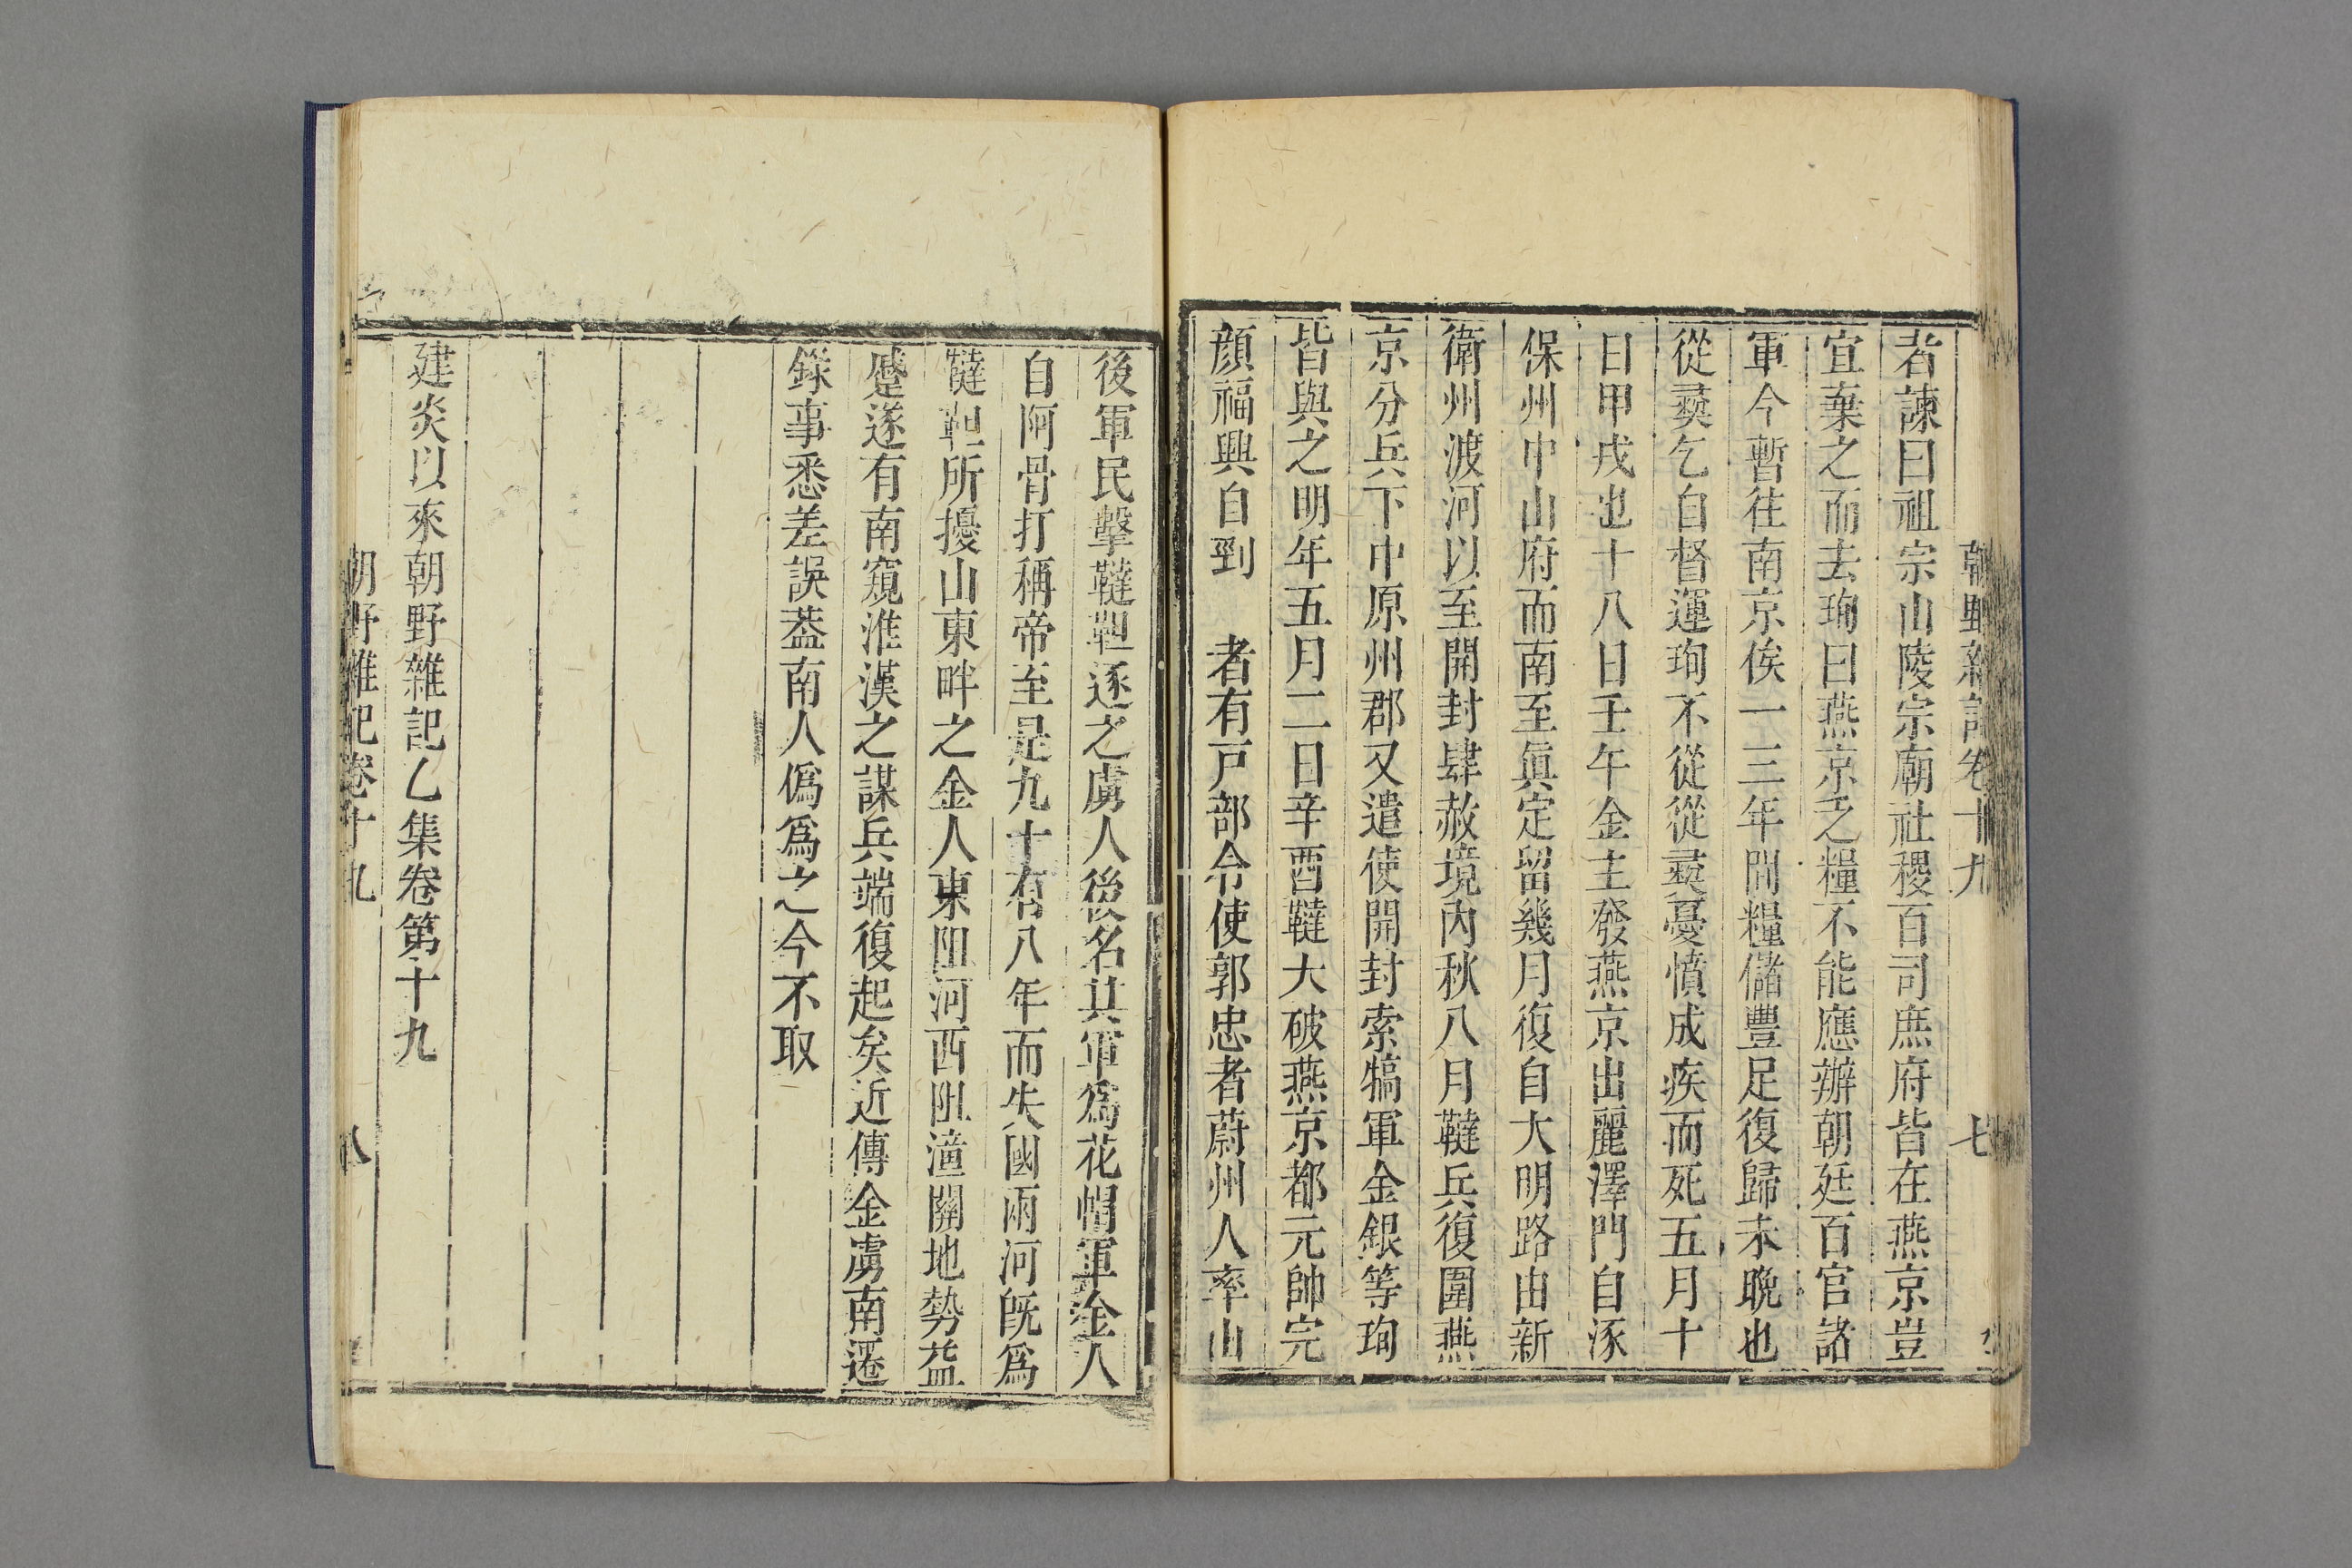 朝野雜記卷十九 七
者諫曰祖宗山陵宗廟社稷百司庶府皆在燕京豈
宜棄之而去珣曰燕京乏糧不能應辦朝廷百官諸
軍今暫往南京俟一三年間糧儲豐足復歸未晚也
從彞乞自督運珣不從從彞憂憤成疾而死五月十
日甲戌也十八日壬午金主發燕京出麗澤門自涿
保州中山府而南至眞定留幾月復自大明路由新
衛州渡河以至開封肆赦境內秋八月韃兵復圍燕
京分兵下中原州郡又遣使開封索犒軍金銀等珣
皆與之明年五月二日辛酉韃大破燕京都元帥完
顏福興自剄 者有戸部令使郭忠者蔚州人率山
後軍民擊韃靼逐之虜人後名其軍爲花帽軍金人
自阿骨打稱帝至是九十有八年而失國兩河旣爲
韃靼所擾山東畔之金人東阻河西阻潼關地勢益
蹙遂有南窺淮漢之謀兵端復起矣近傳金虜南遷
錄事悉差誤葢南人僞爲之今不取
建炎以來朝野雜記乙集卷第十九
朝野雜記卷十九 八